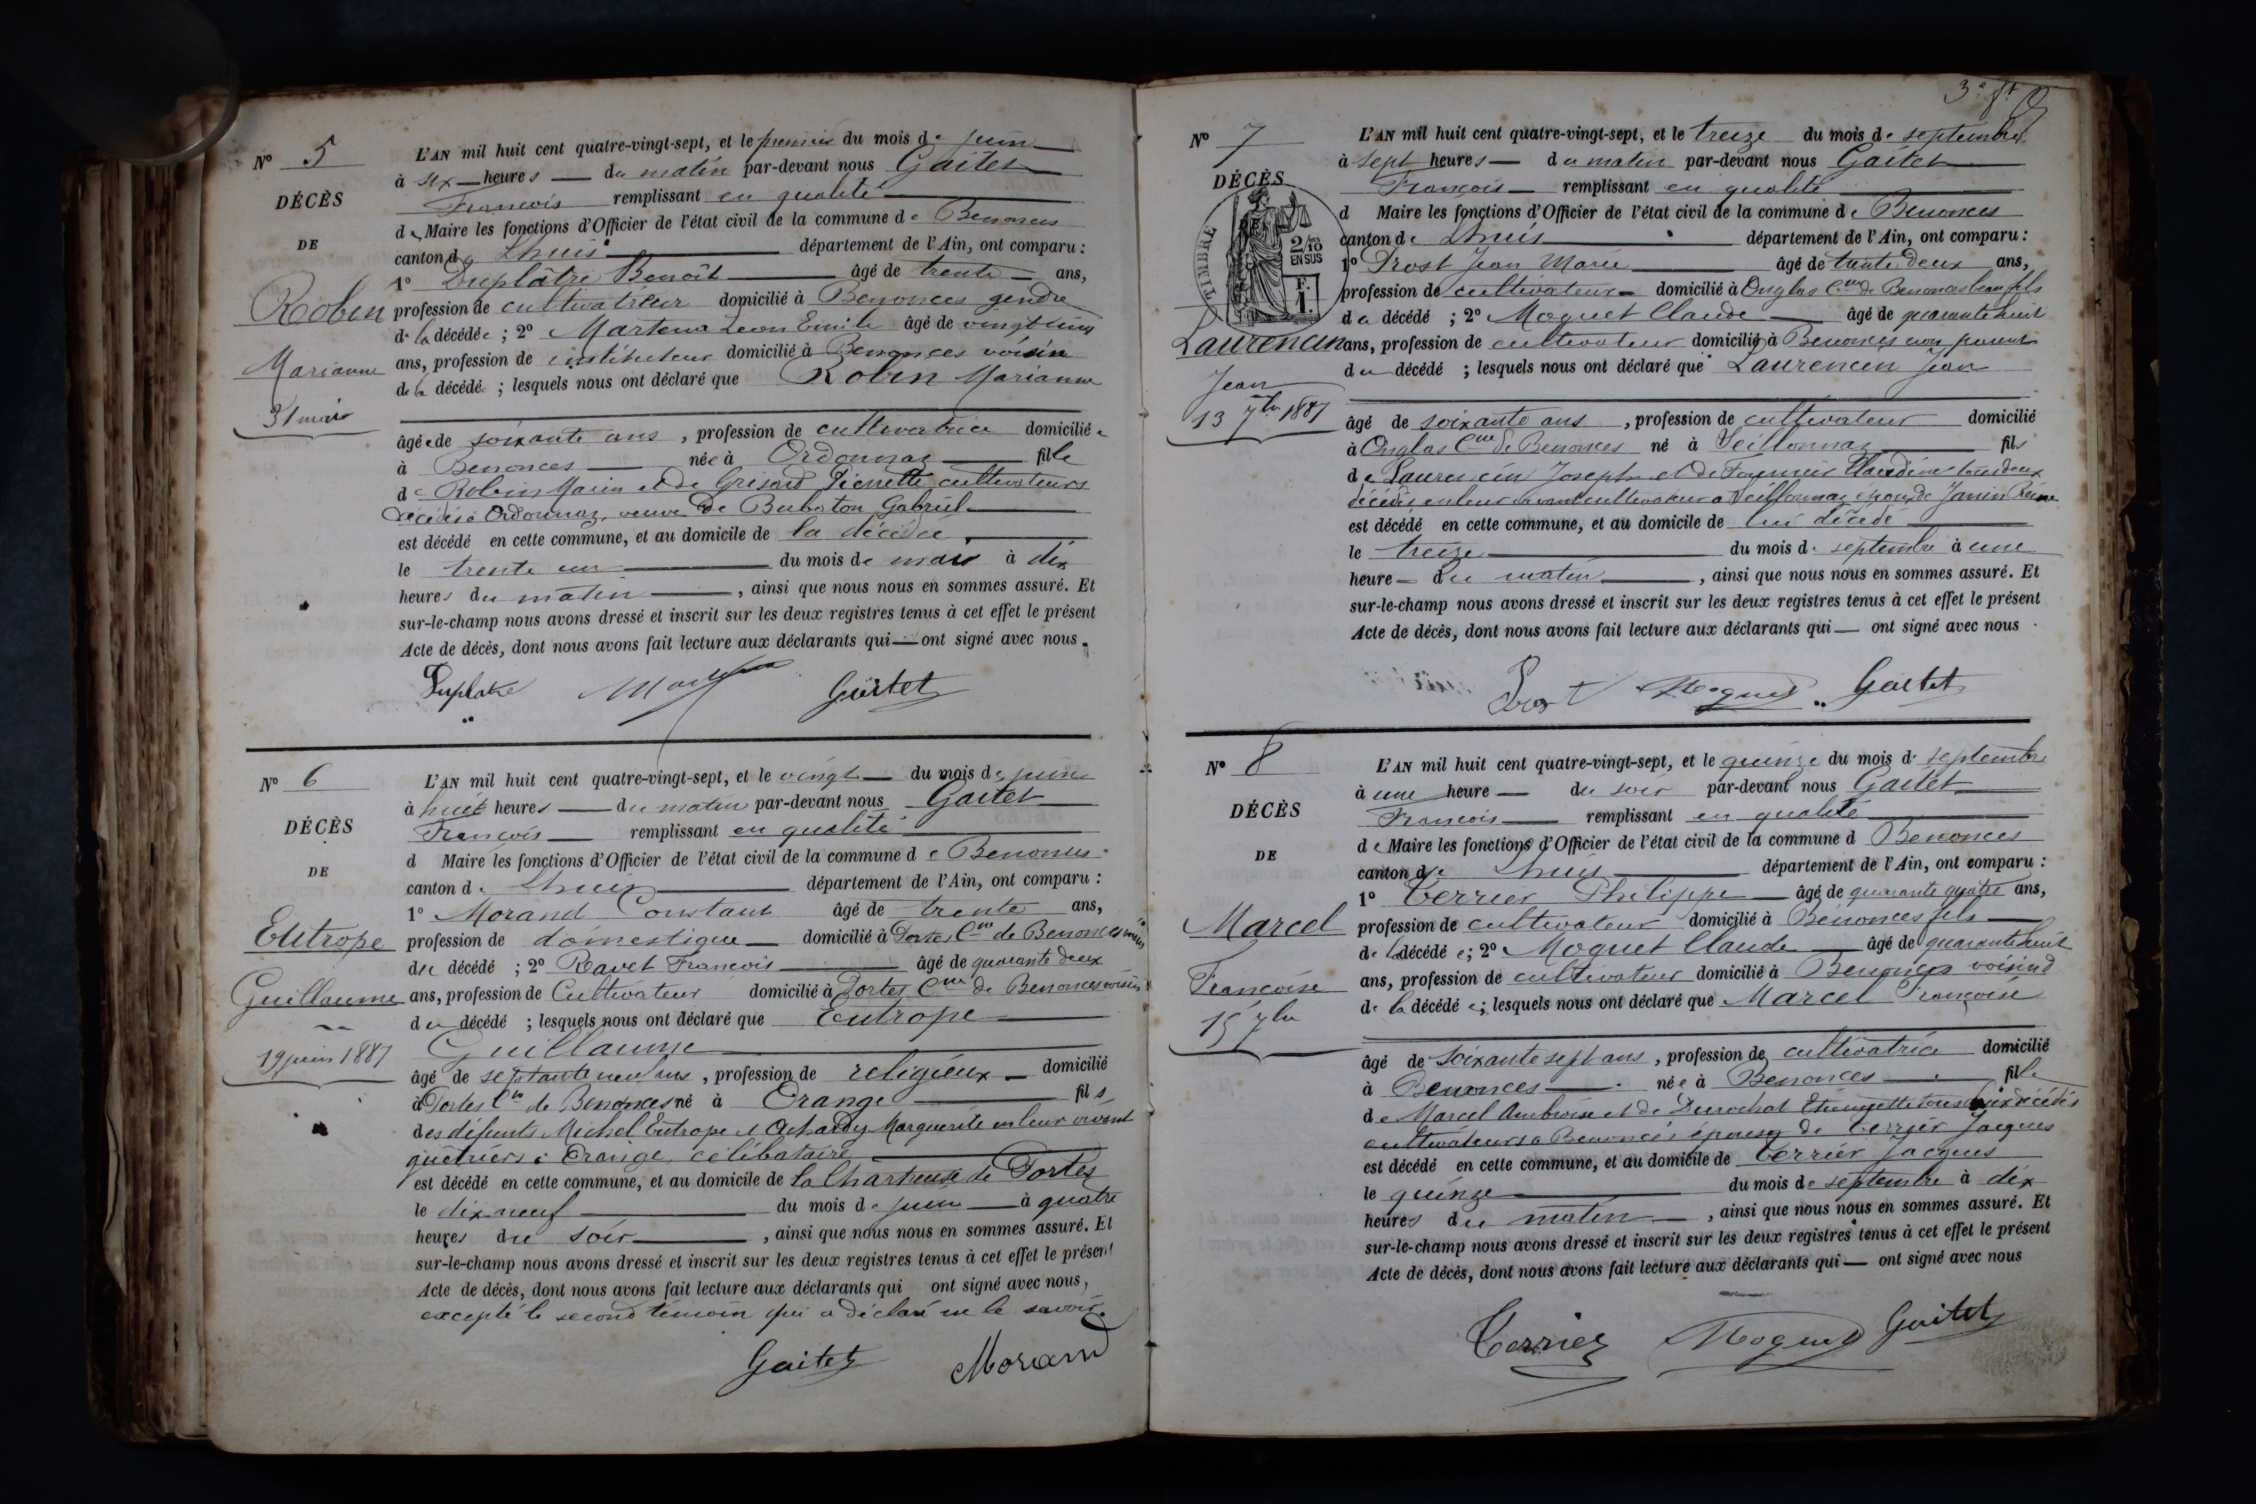 N° 5
DÉCÈS
DE
Robin
Marianne
31 mai
L'AN mil huit cent quatre-vingt-sept, et le premier du mois de juin
à six heures du matin par-devant nous Gaitet
François remplissant en qualité
de Maire les fonctions d'Officier de l'état civil de la commune de Benonces
canton de Lhuis département de l'Ain, ont comparu :
1° Duplâtre Benoît âgé de trente ans,
profession de cultivateur domicilié à Benonces gendre
de la décédée ; 2° Léon Emile âgé de vingt cinq
ans, profession de instituteur domicilié à Benonces voisin
de la décédé ; lesquels nous ont déclaré que Robin Marianne
âgée de soixante ans , profession de cultivatrice domiciliée
à Benonces née à Ordonnaz fille
de Robin Marin et de Grisard Pierrette cultivateurs
décédés à Ordonnaz, veuve de Gabriel
est décédé en cette commune, et au domicile de la décédée
le trente un du mois de mai à dix
heures du matin , ainsi que nous nous en sommes assuré. Et
sur-le-champ nous avons dressé et inscrit sur les deux registres tenus à cet effet le présent
Acte de décès, dont nous avons fait lecture aux déclarants qui ont signé avec nous.
Duplatre Gaitet
N° 6
DÉCÈS
DE
Eutrope
Guillaume
19 juin 1887
L'AN mil huit cent quatre-vingt-sept, et le vingt du mois de juin
à huit heures du matin par-devant nous Gaitet
François remplissant en qualité
d Maire les fonctions d'Officier de l'état civil de la commune de Benonces
canton de Lhuis département de l'Ain, ont comparu :
1° Morand Constant âgé de trente ans,
profession de domestique domicilié à Portes Cne de Benonces voisin
du décédé ; 2° Ravet François âgé de quarante deux
ans, profession de Cultivateur domicilié à Portes Cne de Benonces voisin
du décédé ; lesquels nous ont déclaré que Eutrope
Guillaume
âgé de septante neuf ans , profession de religieux domicilié
à Portes Cne de Benonces né à Orange fils
des défunts Michel Eutrope et Achardy Marguerite en leur vivant
guêtriers à Orange, célibataire
est décédé en cette commune, et au domicile de la Chartreuse de Portes
le dix neuf du mois de juin à quatre
heures du soir , ainsi que nous nous en sommes assuré. Et
sur-le-champ nous avons dressé et inscrit sur les deux registres tenus à cet effet le présent
Acte de décès, dont nous avons fait lecture aux déclarants qui ont signé avec nous,
excepté le second témoin qui a déclaré ne le savoir.
Gaitet Morand
N° 7
DÉCÈS
TIMBRE
2/10
EN SUS
F.
1.
Laurencin
Jean
13 7bre 1887
L'AN mil huit cent quatre-vingt-sept, et le treize du mois de septembre
à sept heures du matin par-devant nous Gaitet
François remplissant en qualité
d Maire les fonctions d'Officier de l'état civil de la commune de Benonces
canton de Lhuis département de l'Ain, ont comparu :
1° Prost Jean Marie âgé de trente deux ans,
profession de cultivateur domicilié à Onglas Cne de Benonces beau fils
du décédé ; 2° Moguet Claude âgé de quarante huit
ans, profession de cultivateur domicilié à Benonces non parent
du décédé ; lesquels nous ont déclaré que Laurencin Jean
âgé de soixante ans , profession de cultivateur domicilié
à Onglas Cne de Benonces né à Seillonnaz fils
de Laurencin Joseph et de Claudine tous deux
décédés en leur vivant cultivateur à Seillonnaz époux de Janin Reine
est décédé en cette commune, et au domicile de lui décédé
le treize du mois de septembre à une
heure du matin , ainsi que nous nous en sommes assuré. Et
sur-le-champ nous avons dressé et inscrit sur les deux registres tenus à cet effet le présent
Acte de décès, dont nous avons fait lecture aux déclarants qui ont signé avec nous
Prost Moguet Gaitet
N° 8
DÉCÈS
DE
Marcel
Françoise
15 7bre
L'AN mil huit cent quatre-vingt-sept, et le quinze du mois de septembre
à une heure du soir par-devant nous Gaitet
François remplissant en qualité
de Maire les fonctions d'Officier de l'état civil de la commune d Benonces
canton de Lhuis département de l'Ain, ont comparu :
1° Terrier Philippe âgé de quarante quatre ans,
profession de cultivateur domicilié à Benonces fils
de la décédée ; 2° Moguet Claude âgé de quarante huit
ans, profession de cultivateur domicilié à Benonces voisin
de la décédée ; lesquels nous ont déclaré que Marcel Françoise
âgé de soixante sept ans , profession de cultivatrice domicilié
à Benonces née à Benonces fille
de Marcel Ambroise et de Durochat Etiennette tous deux décédés
cultivateurs à Benonces épouse de Terrier Jacques
est décédé en cette commune, et au domicile de Terrier Jacques
le quinze du mois de septembre à dix
heures du matin , ainsi que nous nous en sommes assuré. Et
sur-le-champ nous avons dressé et inscrit sur les deux registres tenus à cet effet le présent
Acte de décès, dont nous avons fait lecture aux déclarants qui ont signé avec nous
Terrier Moguet Gaitet